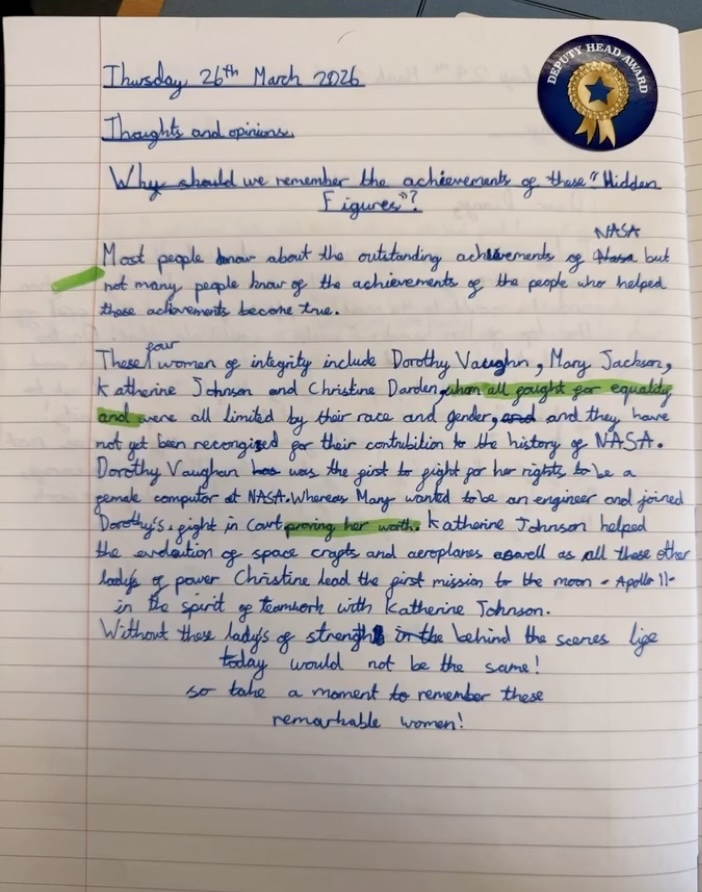 DEPUTY HEAD AWARD
Thursday 26th March 2026
Thoughts and opinions.
Why should we remember the achievements of these "Hidden
Figures"?
NASA
Most people know about the outstanding achievements of Nasa but
not many people know of the achievements of the people who helped
these achievements become true.
four
These women of integrity include Dorothy Vaughn, Mary Jackson,
Katherine Johnson and Christine Darden, whom all fought for equality
and were all limited by their race and gender, and and they have
not yet been recongised for their contribition to the history of NASA.
Dorothy Vaughan has was the first to fight for her rights to be a
female computor at NASA. Whereas Mary wanted to be an engineer and joined
Dorothy's, fight in Court proving her worth. Katherine Johnson helped
the evolution of space crafts and aeroplanes aswell as all these other
lady's of power Christine lead the first mission to the moon - Apollo 11-
in the spirit of teamwork with Katherine Johnson.
Without these lady's of strength in the behind the scenes life
today would not be the same!
so take a moment to remember these
remarkable women!